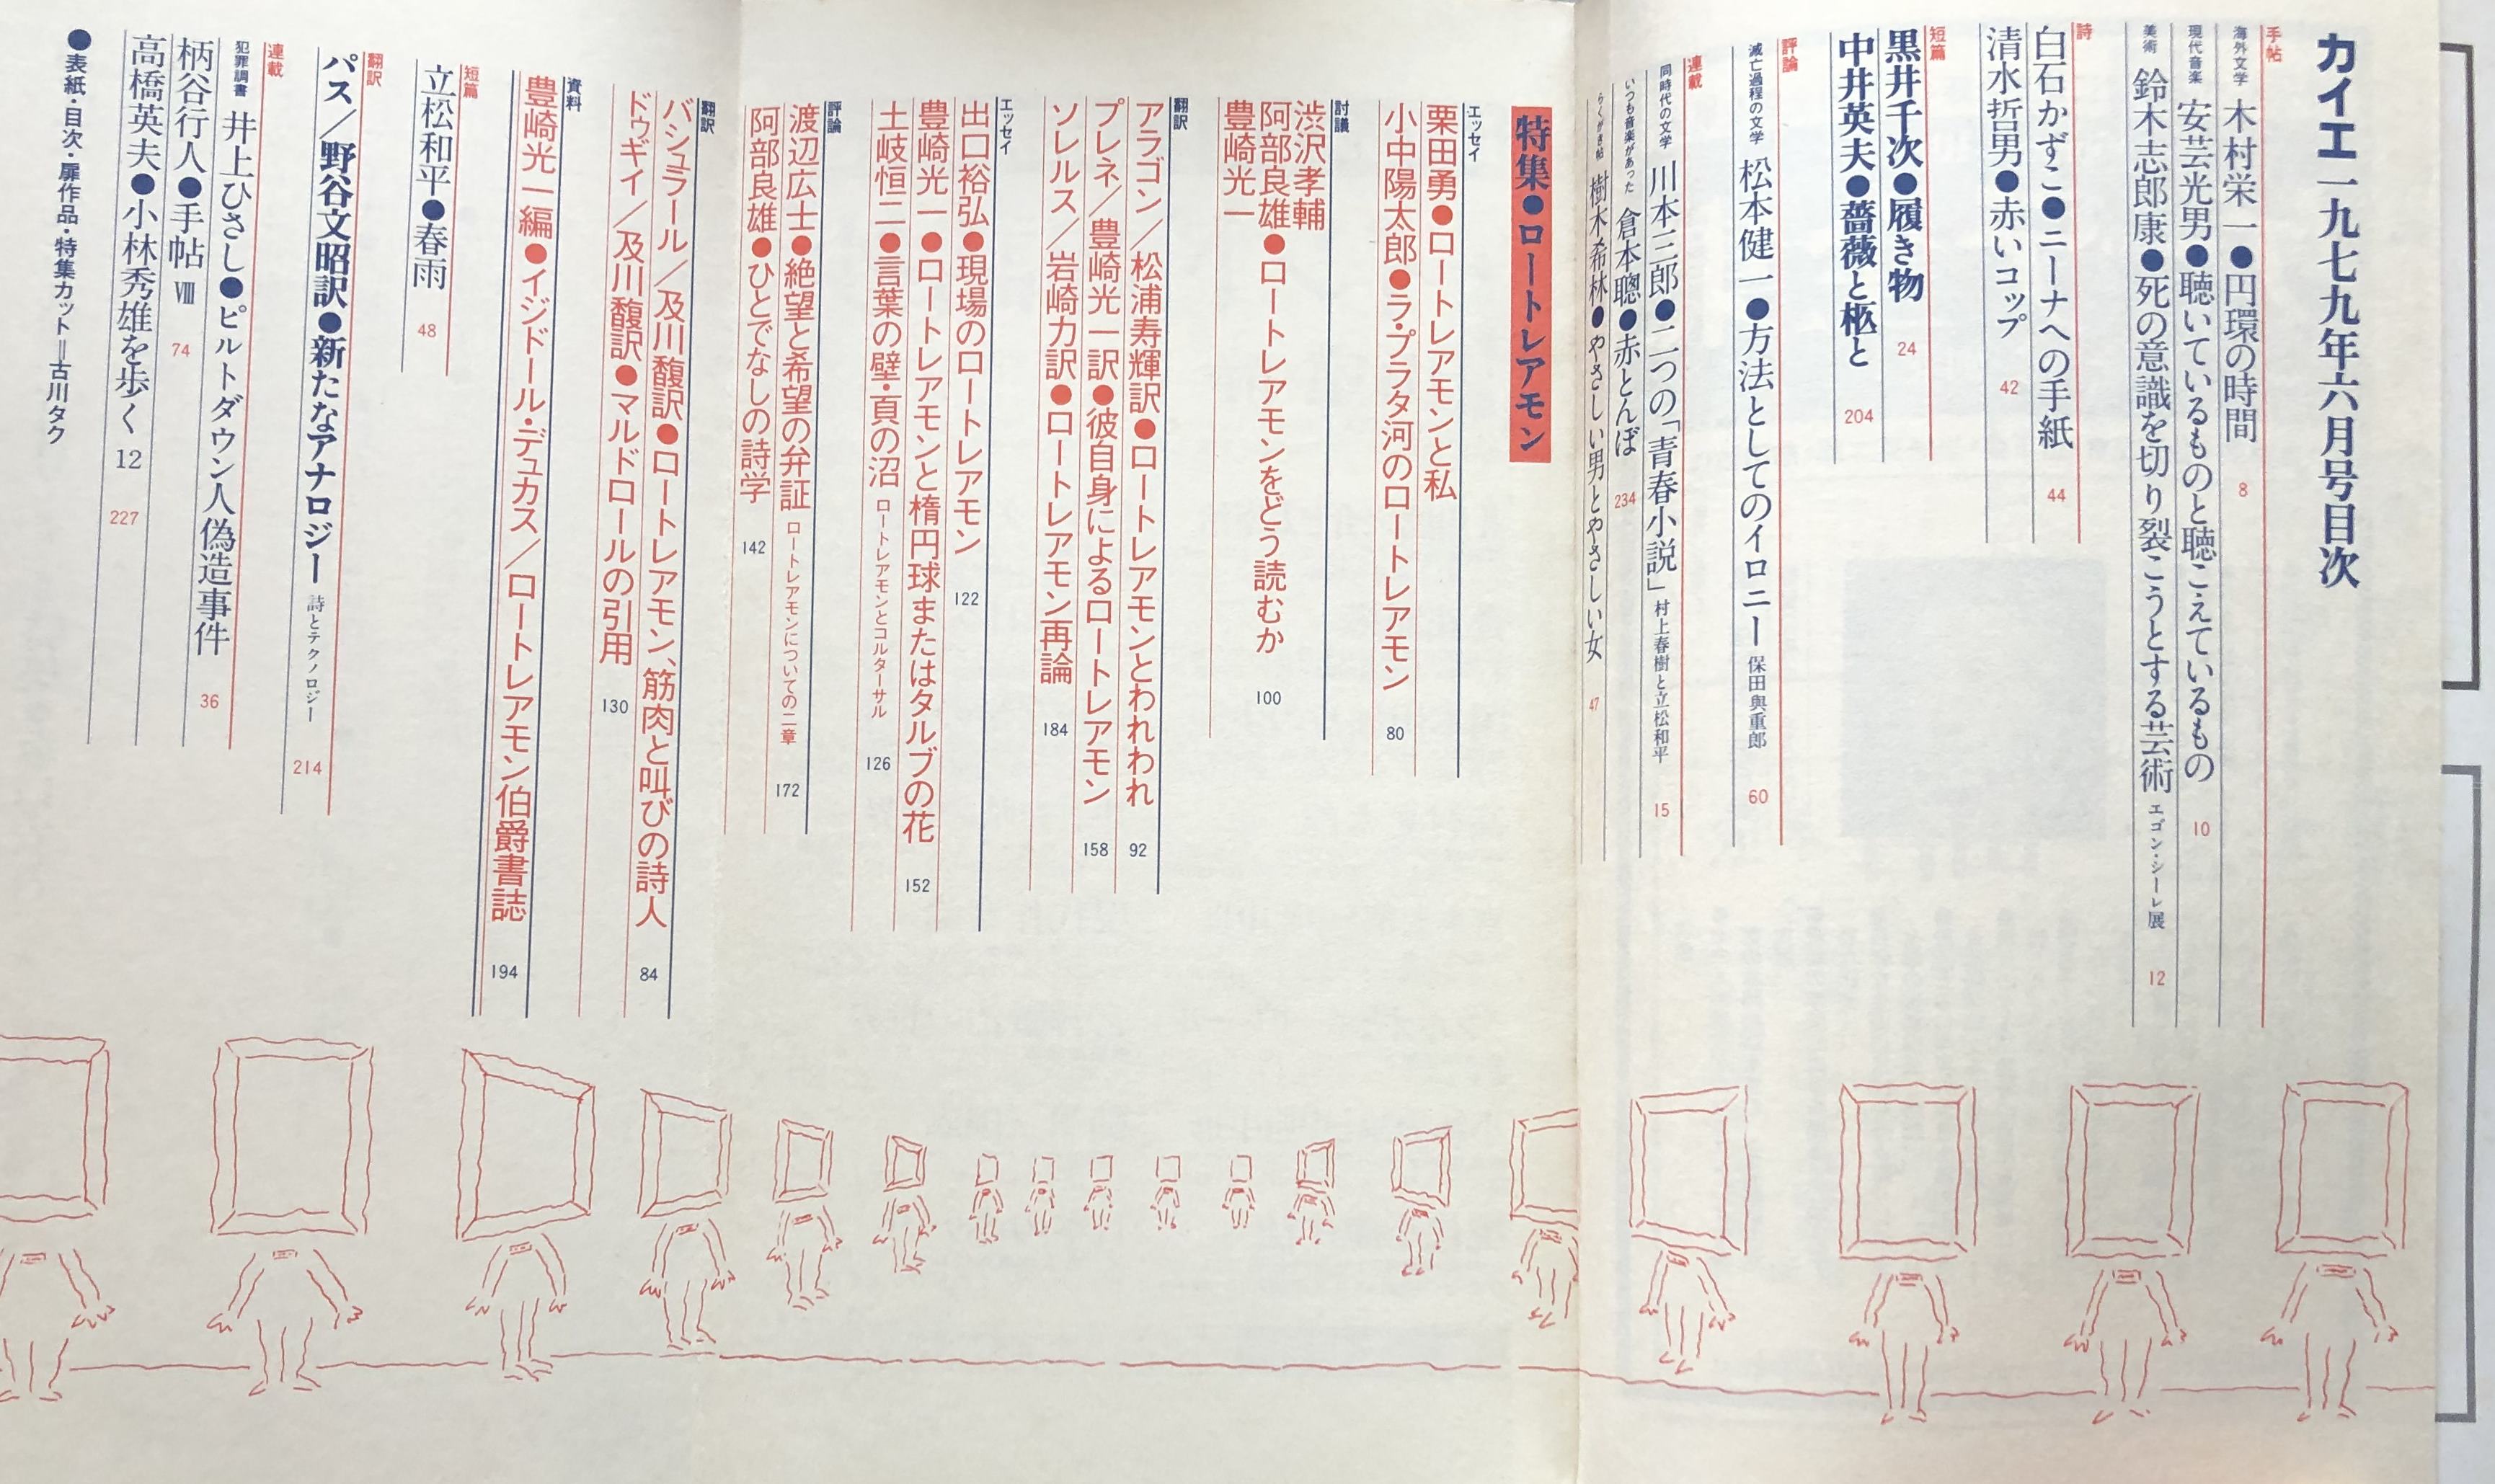 カイエ一九七九年六月号目次
手帖
海外文学 木村栄一●円環の時間 8
現代音楽 安芸光男●聴いているものと聴こえているもの 10
美術 鈴木志郎康●死の意識を切り裂こうとする芸術 エゴン・シーレ展 12
詩
白石かずこ●ニーナへの手紙 44
清水哲男●赤いコップ 42
短篇
黒井千次●履き物 24
中井英夫●薔薇と柩と 204
評論
滅亡過程の文学 松本健一●方法としてのイロニー 保田與重郎 60
連載
同時代の文学 川本三郎●二つの「青春小説」 村上春樹と立松和平 15
いつも音楽があった 倉本聰●赤とんぼ 234
らくがき帖 樹木希林●やさしい男とやさしい女 47
特集●ロートレアモン
エッセイ
栗田勇●ロートレアモンと私
小中陽太郎●ラ・プラタ河のロートレアモン 80
討議
渋沢孝輔
阿部良雄●ロートレアモンをどう読むか 100
豊崎光一
翻訳
アラゴン／松浦寿輝訳●ロートレアモンとわれわれ 92
プレネ／豊崎光一訳●彼自身によるロートレアモン 158
ソレルス／岩崎力訳●ロートレアモン再論 184
エッセイ
出口裕弘●現場のロートレアモン 122
豊崎光一●ロートレアモンと楕円球またはタルブの花 152
土岐恒二●言葉の壁・頁の沼 ロートレアモンとコルターサル 126
評論
渡辺広士●絶望と希望の弁証 ロートレアモンについての二章 172
阿部良雄●ひとでなしの詩学 142
翻訳
バシュラール／及川馥訳●ロートレアモン、筋肉と叫びの詩人 84
ドゥギイ／及川馥訳●マルドロールの引用 130
資料
豊崎光一編●イジドール・デュカス／ロートレアモン伯爵書誌 194
短篇
立松和平●春雨 48
翻訳
パス／野谷文昭訳●新たなアナロジー 詩とテクノロジー 214
連載
犯罪調書 井上ひさし●ピルトダウン人偽造事件 36
柄谷行人●手帖 Ⅷ 74
高橋英夫●小林秀雄を歩く 12 227
●表紙・目次・扉作品・特集カット＝古川タク